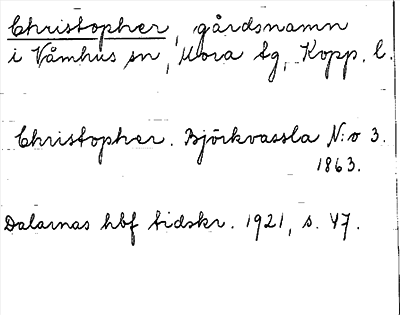 Christopher, gårdsnamn
i Våmhus sn, Mora tg, Kopp. l.
Christopher. Björkvassla N:o 3.
1863.
Dalarnas hbf tidskr. 1921, s. 47.